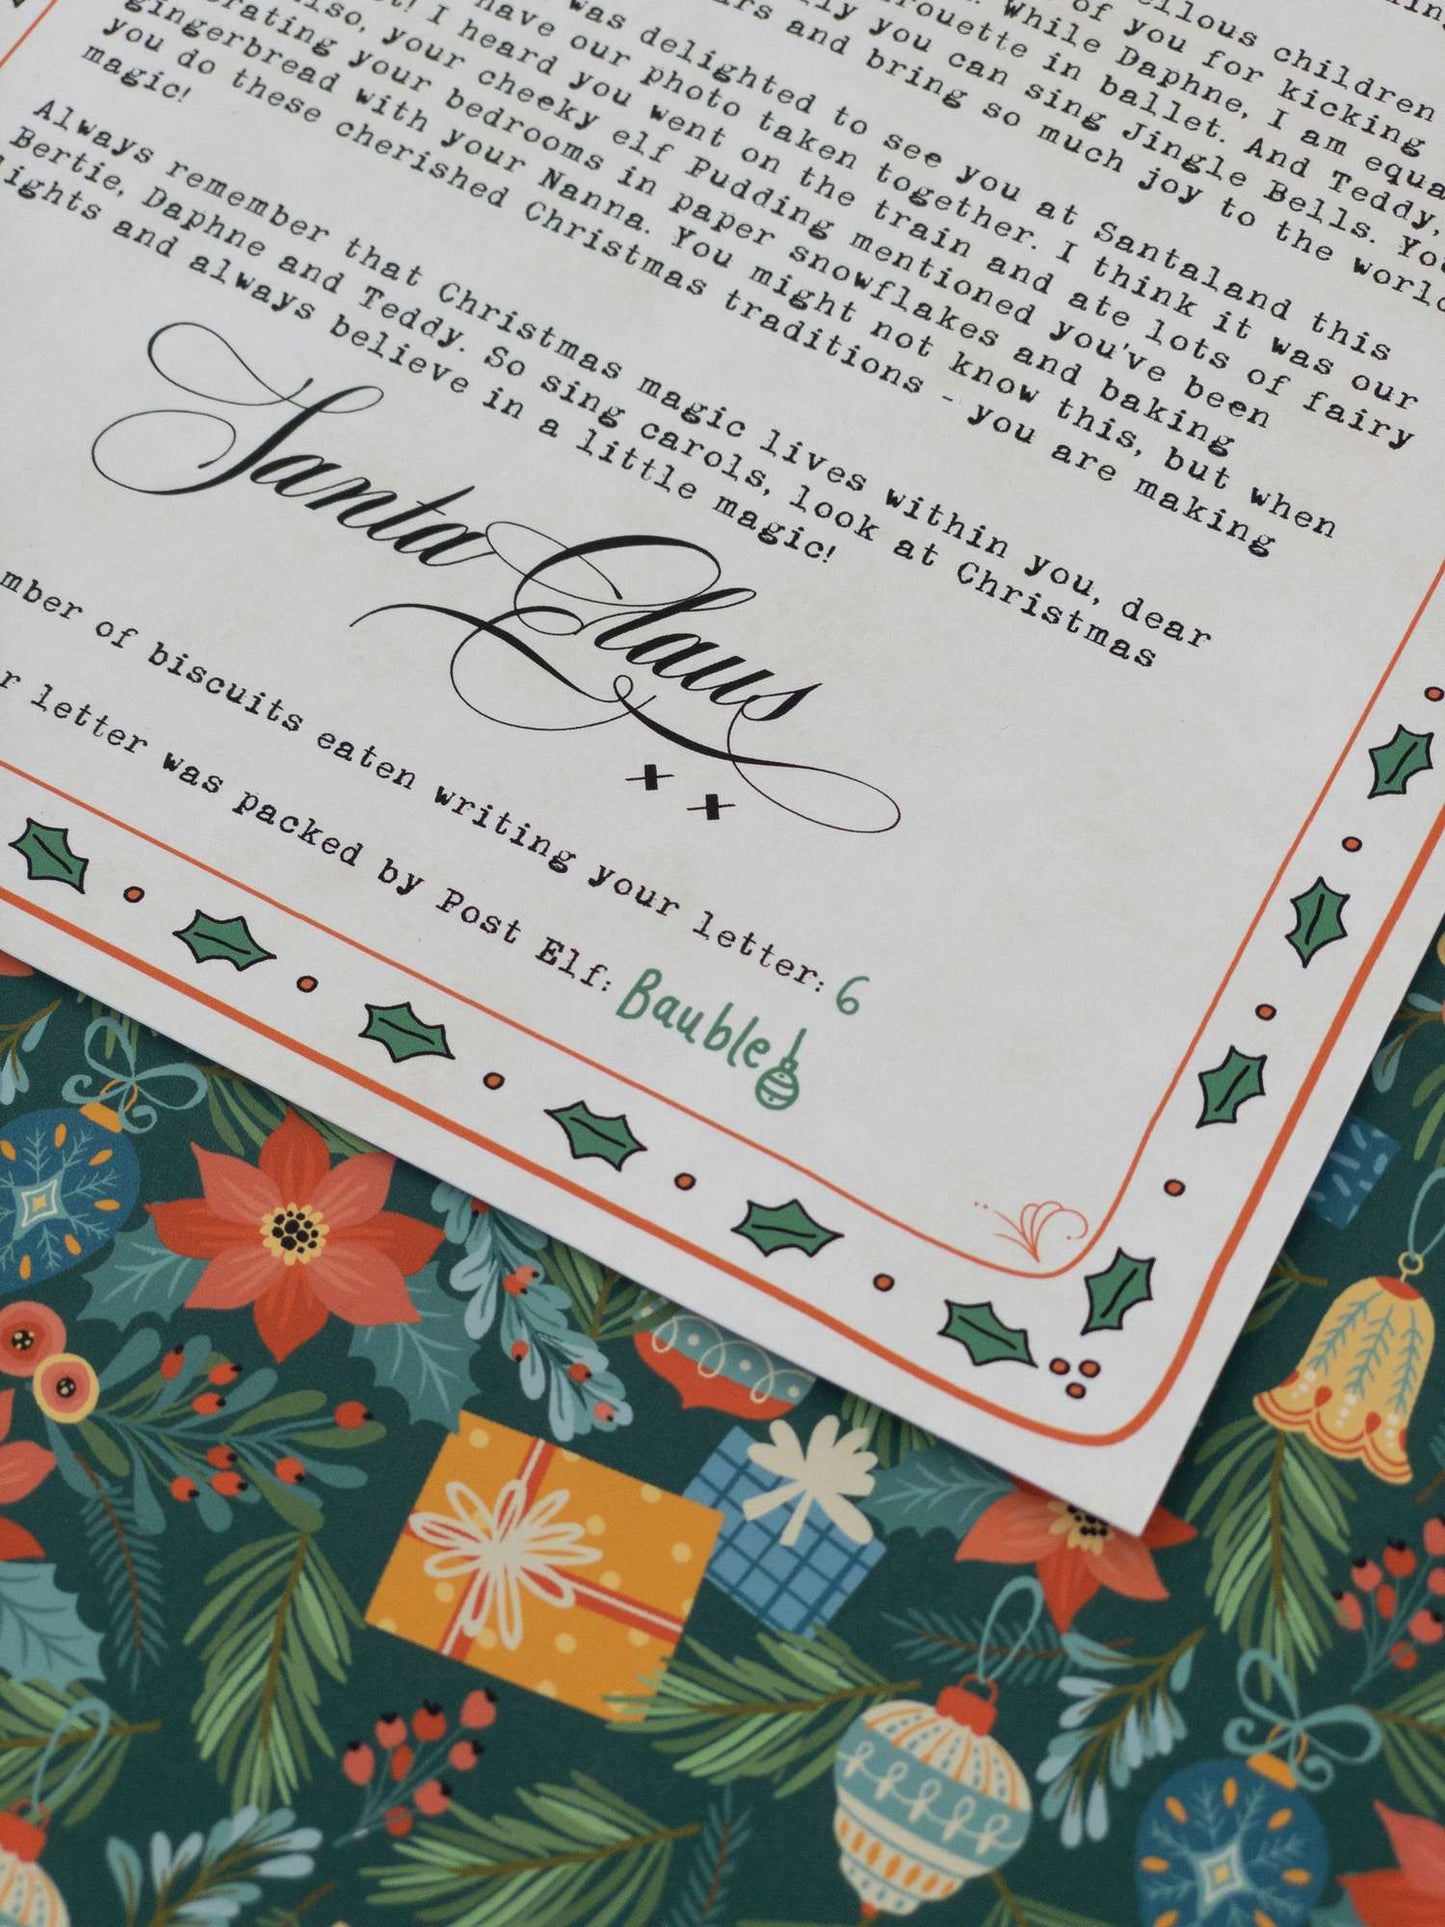 ellous children
of you for kicking
While Daphne, I am equa
rouette in ballet. And Teddy,
ly you can sing Jingle Bells. You
rs and bring so much joy to the world
was delighted to see you at Santaland this
have our photo taken together. I think it was our
! I heard you went on the train and ate lots of fairy
lso, your cheeky elf Pudding mentioned you've been
rating your bedrooms in paper snowflakes and baking
gingerbread with your Nanna. You might not know this, but when
you do these cherished Christmas traditions - you are making
magic!
Always remember that Christmas magic lives within you, dear
Bertie, Daphne and Teddy. So sing carols, look at Christmas
ights and always believe in a little magic!
Santa Claus
x x
mber of biscuits eaten writing your letter: 6
r letter was packed by Post Elf: Bauble